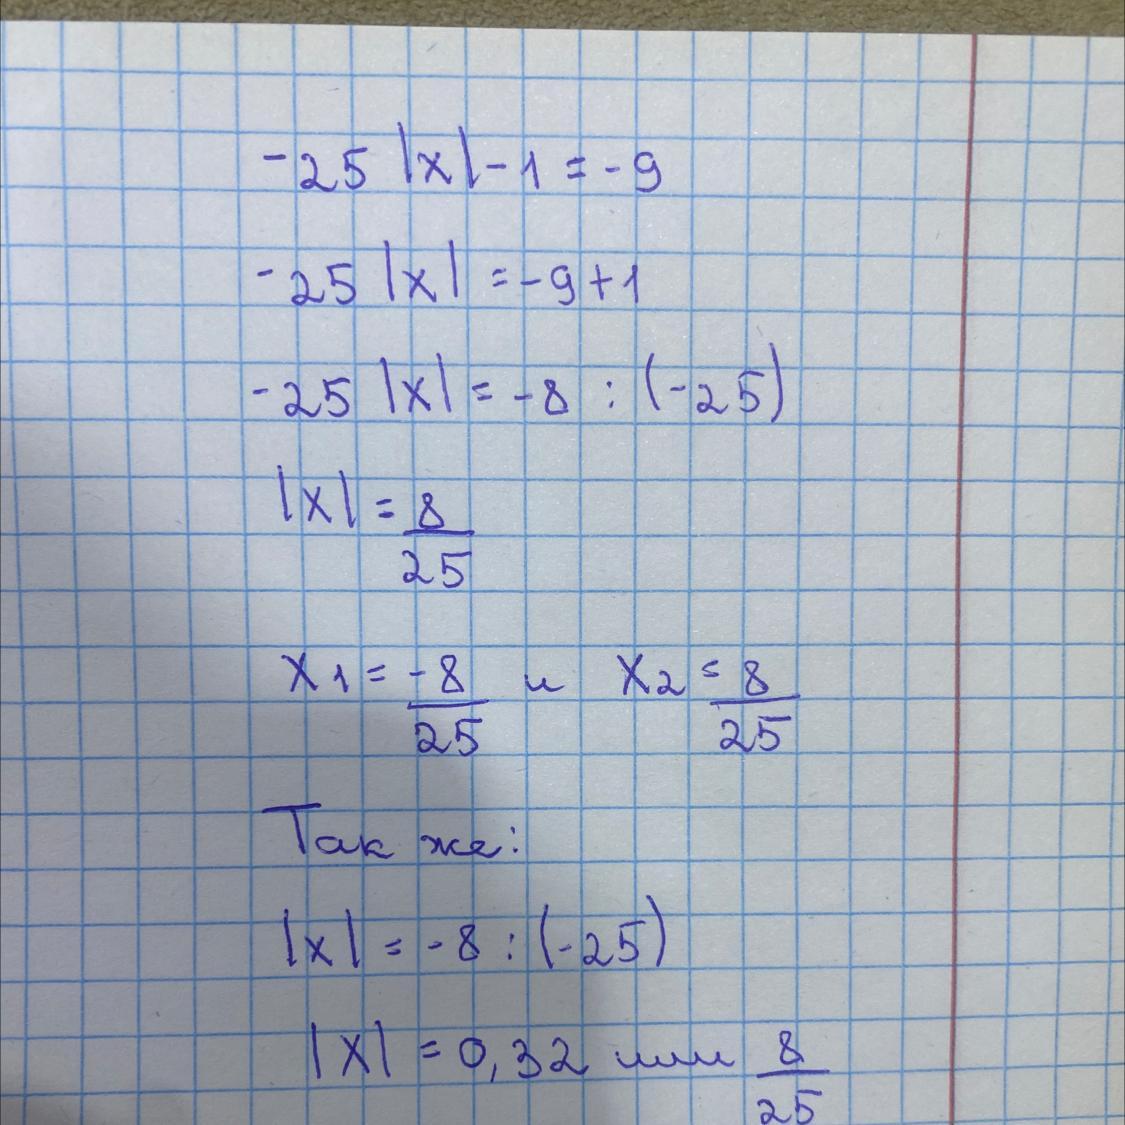 -25 |x| - 1 = -9
-25 |x| = -9 + 1
-25 |x| = -8 : (-25)
|x| = 8/25
x1 = -8/25 и x2 = 8/25
Так же:
|x| = -8 : (-25)
|x| = 0,32 или 8/25